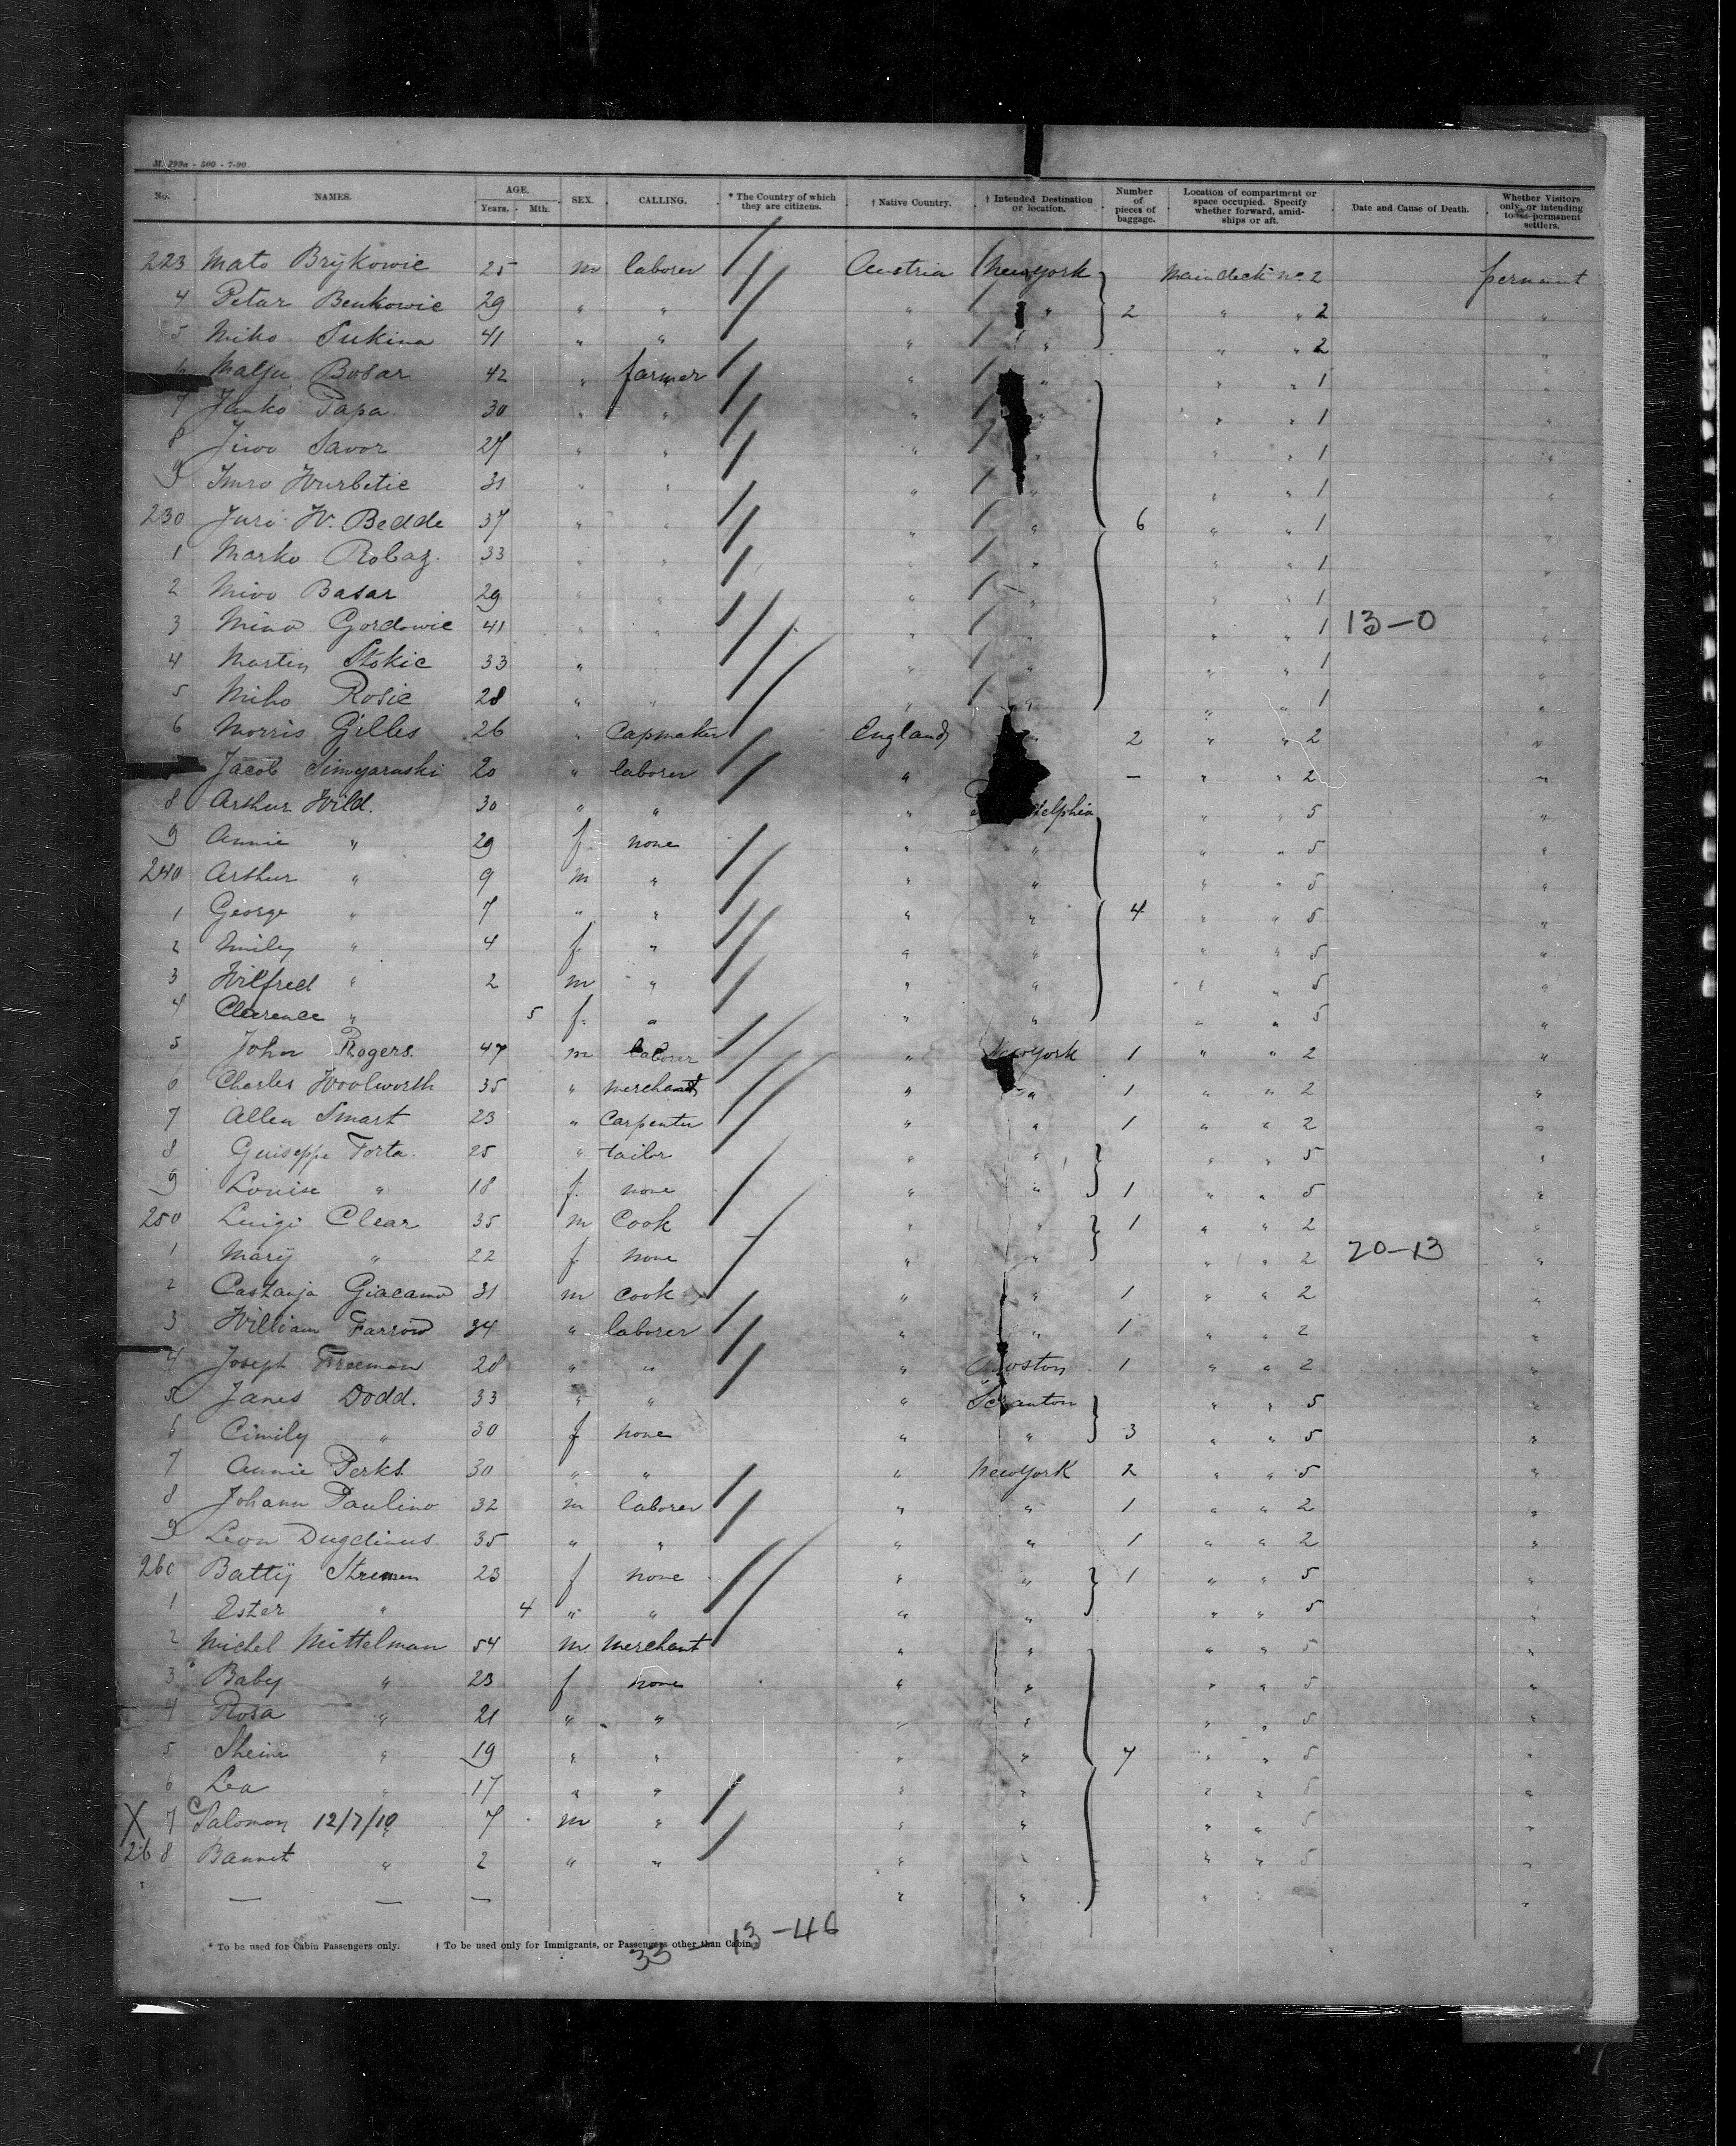 M. 299a - 500 - 7-90.
No. NAMES. AGE. Years. Mth. SEX. CALLING. * The Country of which they are citizens. † Native Country. † Intended Destination or location. Number of pieces of baggage. Location of compartment or space occupied. Specify whether forward, amidships or aft. Date and Cause of Death. Whether Visitors only, or intending to be permanent settlers.
223 Mato Brÿkowic 25 m laborer Austria New York Main deck no. 2
4 Petar Benkowic 29 " " " " 2 " " 2 "
5 Miko Sukina 41 " " " " " " 2 "
6 Bosar 42 " farmer " " " " 1 "
7 Janko Papa 30 " " " " " " 1 "
8 Jivo Savor 27 " " " " " 1 "
9 Imro Hurbetic 31 " " " " " " 1 "
230 Juro W. Bedde 37 " " " " 6 " " 1 "
1 Marko 33 " " " " " " 1 "
2 Mivo Basar 29 " " " " " " 1 "
3 Gordowic 41 " " " " " " 1 13-0 "
4 Martin Stokic 33 " " " " " 1 "
5 Miho Rosic 28 " " " " " " 1 "
6 Morris Gilles 26 " Capmaker England " 2 " " 2 "
Jacob 20 " laborer " — " " 2 "
8 Arthur Wild. 30 " " " delphia " " 5 "
9 Annie " 29 f. none " " " " 5 "
240 Arthur " 9 m " " " " " 5 "
1 George " 7 " " " " 4 " " 5 "
2 Emily " 4 f. " " " " " 5 "
3 Wilfred " 2 m " " " " " 5 "
4 Clarence " 5 f. " " " " " 5 "
5 John Rogers. 47 m laborer " New York 1 " " 2 "
6 Charles Woolworth 35 " merchant " " 1 " " 2 "
7 Allen Smart 23 " Carpenter " " 1 " " 2 "
8 Guiseppe Torta. 25 " tailor " " " " 5 "
9 Louise " 18 f. none " " 1 " " 5 "
250 Luigi Clear 35 m Cook " " 1 " " 2 "
1 Marÿ " 22 f. none " " " " 2 20-13 "
2 Castanja Giacamo 31 m cook " " 1 " " 2 "
3 William Farrow 34 " laborer " " 1 " " 2 "
4 Joseph Freeman 28 " " " Boston 1 " " 2 "
5 James Dodd. 33 " " " Scranton " " 5 "
6 " 30 f none " " 3 " " 5 "
7 Annie Perks 30 " " " New York 2 " " 5 "
8 Johann Paulino 32 m laborer " " 1 " " 2 "
9 Leon 35 " " " " 1 " " 2 "
260 Battÿ 23 f none " " 1 " " 5 "
1 Ester " 4 " " " " " " 5 "
2 Michel Mittelman 54 m merchant " " " " 5 "
3 Baby " 23 f none " " " " 5 "
4 Rosa " 21 " " " " " " 5 "
5 Sheine " 19 " " " " 7 " " 5 "
6 Lea " 17 " " " " " " 5 "
X 7 Salomon 12/7/10 " 7 m " " " " " 5 "
268 Bannet " 2 " " " " " " 5 "
— — — " " " " "
* To be used for Cabin Passengers only. † To be used only for Immigrants, or Passengers other than Cabin.
33 13 -46